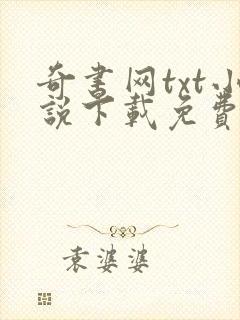 奇書网txt小
說下載免費
袁婆婆